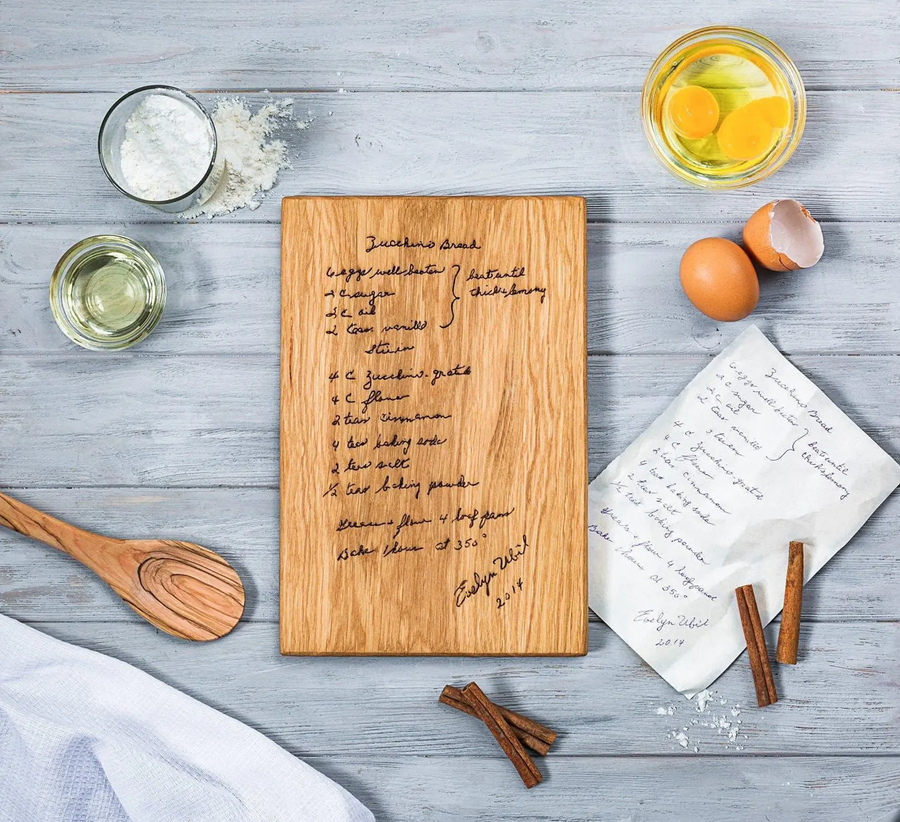 Zucchini Bread
6 eggs well beaten } beat until
2 C sugar thick & lemony
2 C oil
2 teas. vanilla
Stir in
4 C Zucchini - grated
4 C flour
2 teas cinnamon
4 teas baking soda
2 teas salt
1/2 teas baking powder
Grease + flour 4 loaf pans
Bake 1 hour at 350°
Evelyn Ubil
2014
Zucchini Bread
6 eggs well beaten } beat until
2 C sugar thick & lemony
2 C oil
2 teas vanilla
4 C Zucchini grated
4 C flour
2 teas cinnamon
4 teas baking soda
2 teas salt
1/2 teas baking powder
Grease + flour 4 loaf pans
Bake 1 hour at 350°
Evelyn Ubil
2014